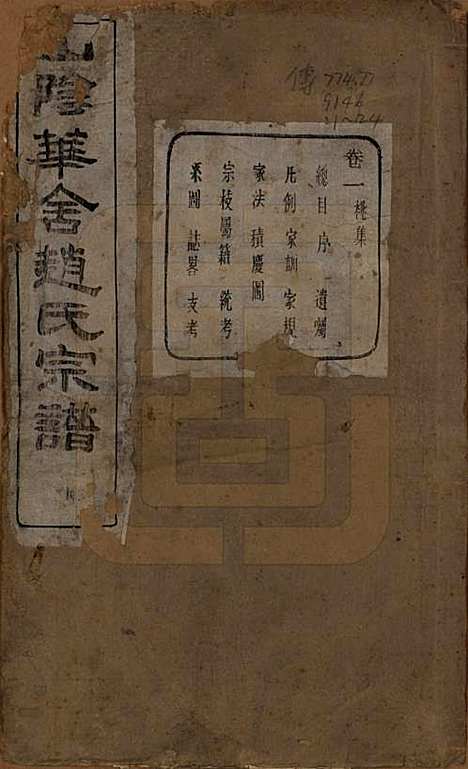 山陰華舍趙氏宗譜
傳
卷一 桃集
總目 序 遺囑
凡例 家訓 家規
家法 積慶圖
宗枝屬籍 統考
采圖 誌畧 支考